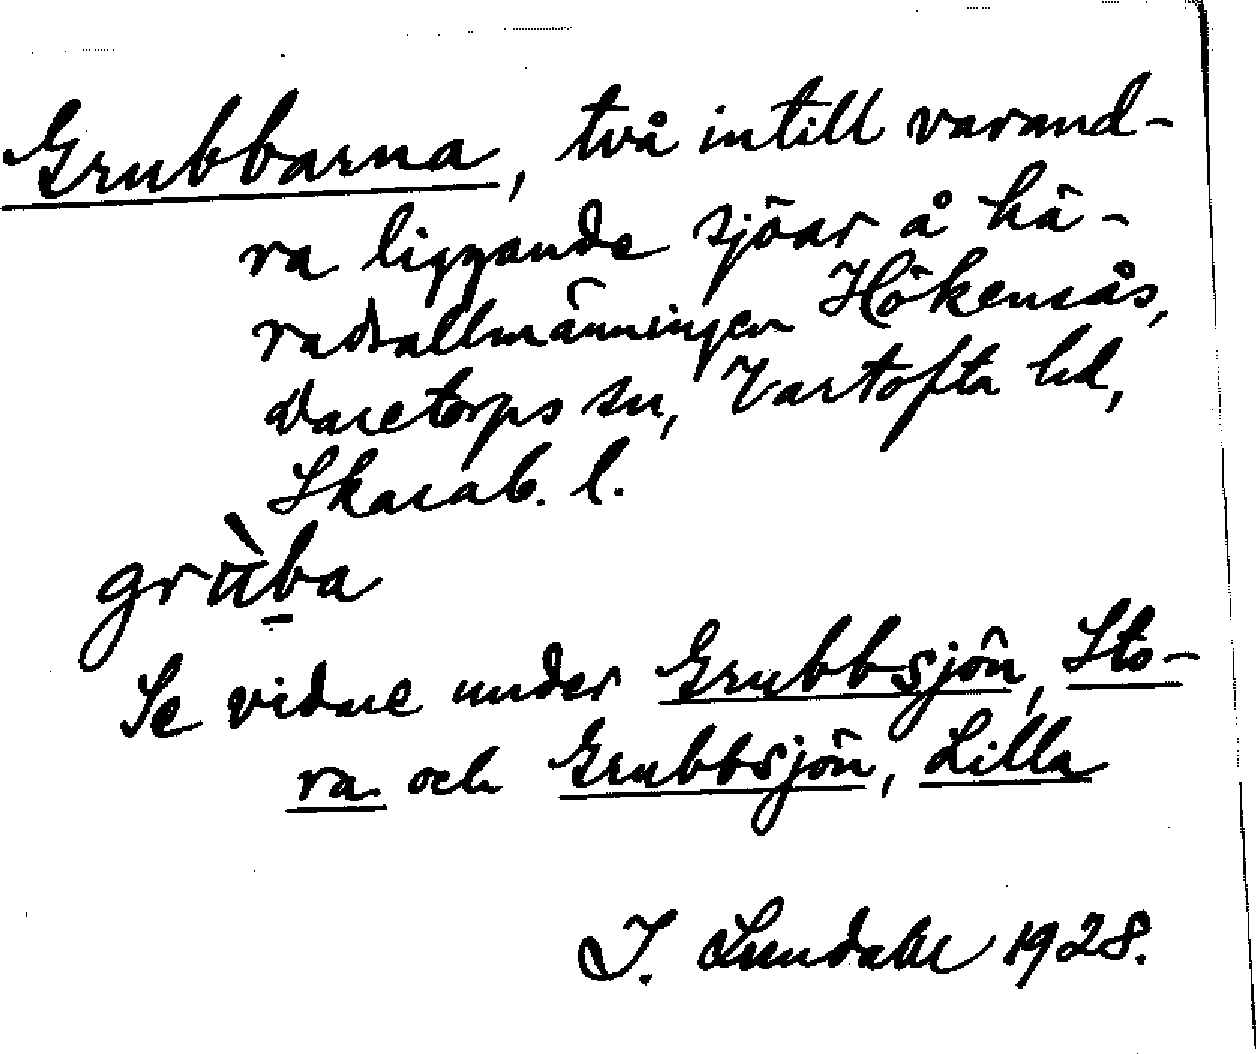 Grubbarna, två intill varand-
ra liggande sjöar å hä-
radsallmänningen Hökensås,
Daretorps sn, Vartofta hd,
Skarab. l.
grùba
Se vidare under Grubbsjön, Sto-
ra och Grubbsjön, Lilla
I. Lundahl 1928.